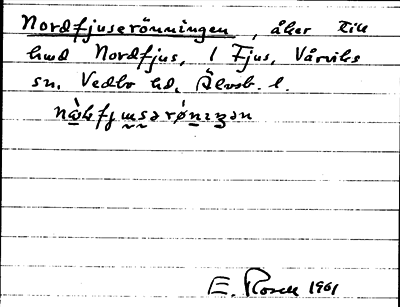 Nordfjuserönningen, åker till
hmd Nordfjus, 1 Fjus, Vårviks
sn, Vedbo hd, Älvsb. l.
E. Rosell 1961